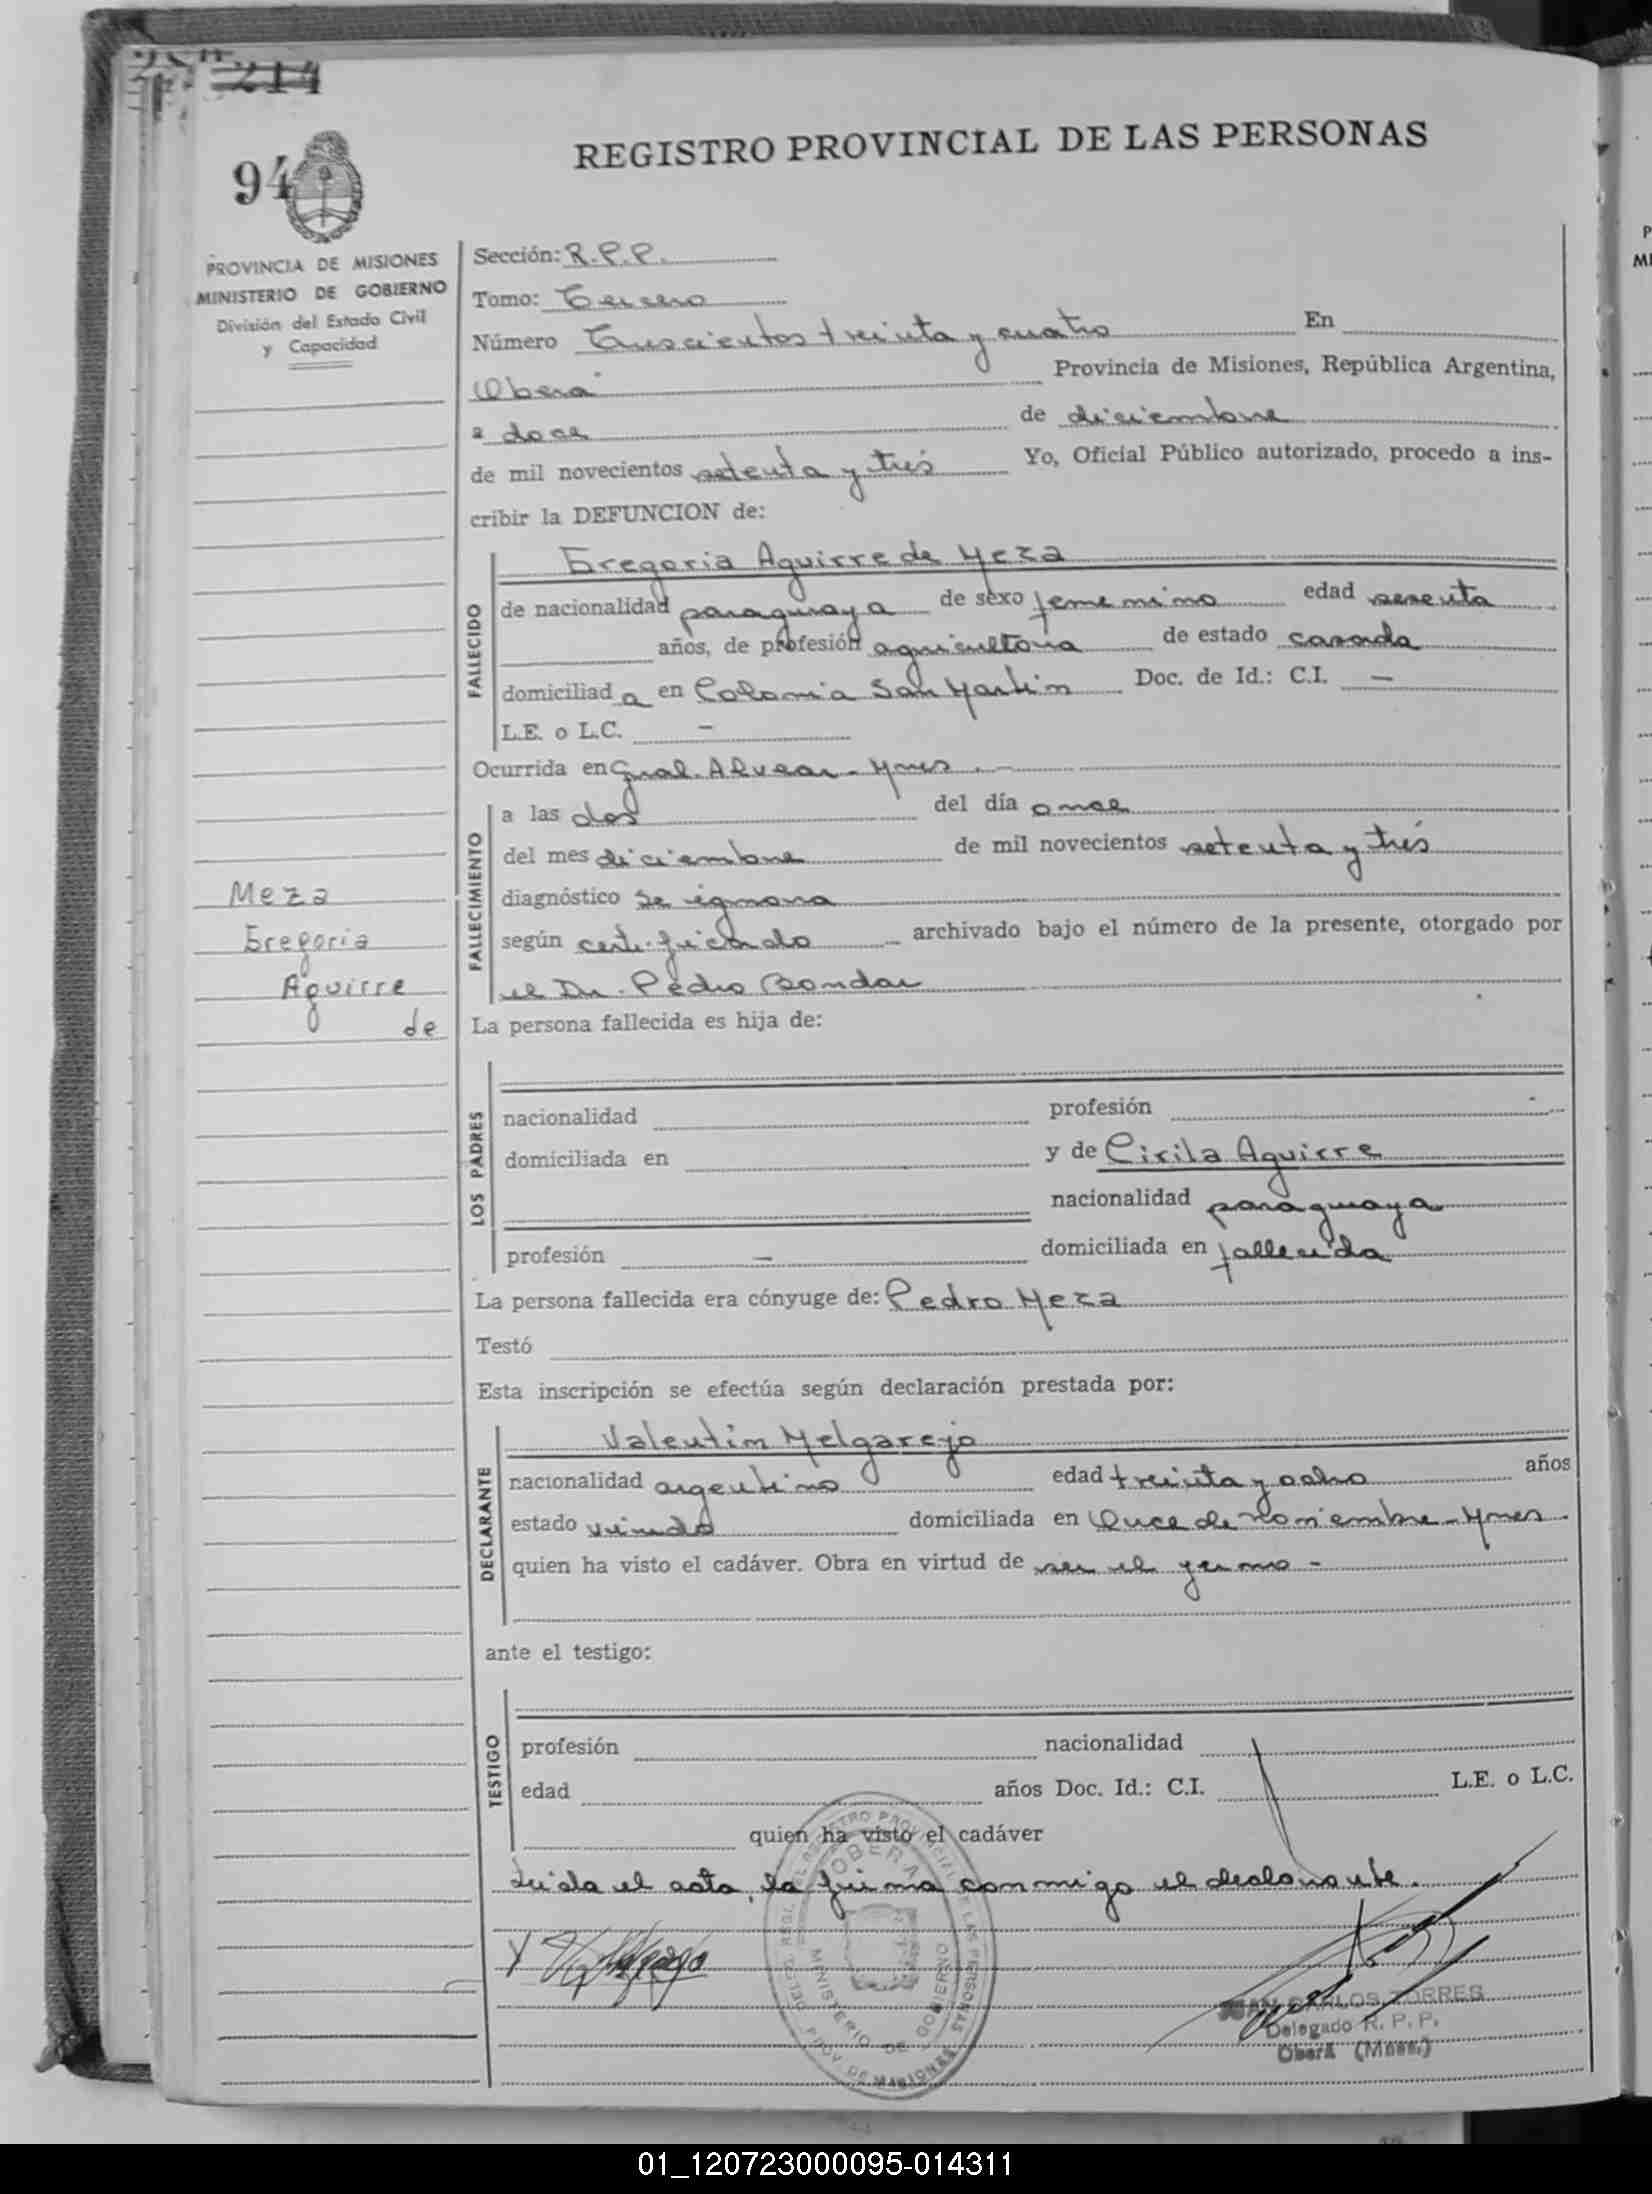 214
94
REGISTRO PROVINCIAL DE LAS PERSONAS
PROVINCIA DE MISIONES
MINISTERIO DE GOBIERNO
División del Estado Civil
y Capacidad
Meza
Gregoria
Aguirre
de
Sección: R.P.P.
Tomo: Tercero
Número Trescientos treinta y cuatro En
Oberá Provincia de Misiones, República Argentina,
a doce de diciembre
de mil novecientos setenta y trés Yo, Oficial Público autorizado, procedo a ins-
cribir la DEFUNCION de:
FALLECIDO
Gregoria Aguirre de Meza
de nacionalidad paraguaya de sexo femenino edad sesenta
años, de profesión agricultora de estado casada
domiciliad a en Colonia San Martín Doc. de Id.: C.I. —
L.E. o L.C. —
Ocurrida en Gral. Alvear - Mnes. -
FALLECIMIENTO
a las dos del día once
del mes diciembre de mil novecientos setenta y trés
diagnóstico se ignora
según certificado archivado bajo el número de la presente, otorgado por
el Dr. Pedro Bondar
La persona fallecida es hija de:
LOS PADRES
nacionalidad profesión
domiciliada en y de Cirila Aguirre
nacionalidad paraguaya
profesión — domiciliada en fallecida
La persona fallecida era cónyuge de: Pedro Meza
Testó
Esta inscripción se efectúa según declaración prestada por:
DECLARANTE
Valentín Melgarejo
nacionalidad argentino edad treinta y ocho años
estado viudo domiciliada en Once de Noviembre - Mnes.
quien ha visto el cadáver. Obra en virtud de ser el yerno -
ante el testigo:
TESTIGO
profesión nacionalidad
edad años Doc. Id.: C.I. L.E. o L.C.
quien ha visto el cadáver
Leída el acta, la firma conmigo el declarante.
OBERA
MINISTERIO DE GOBIERNO
PROV. DE MISIONES
JUAN CARLOS TORRES
Delegado R. P. P.
Oberá (Mnes.)
01_120723000095-014311